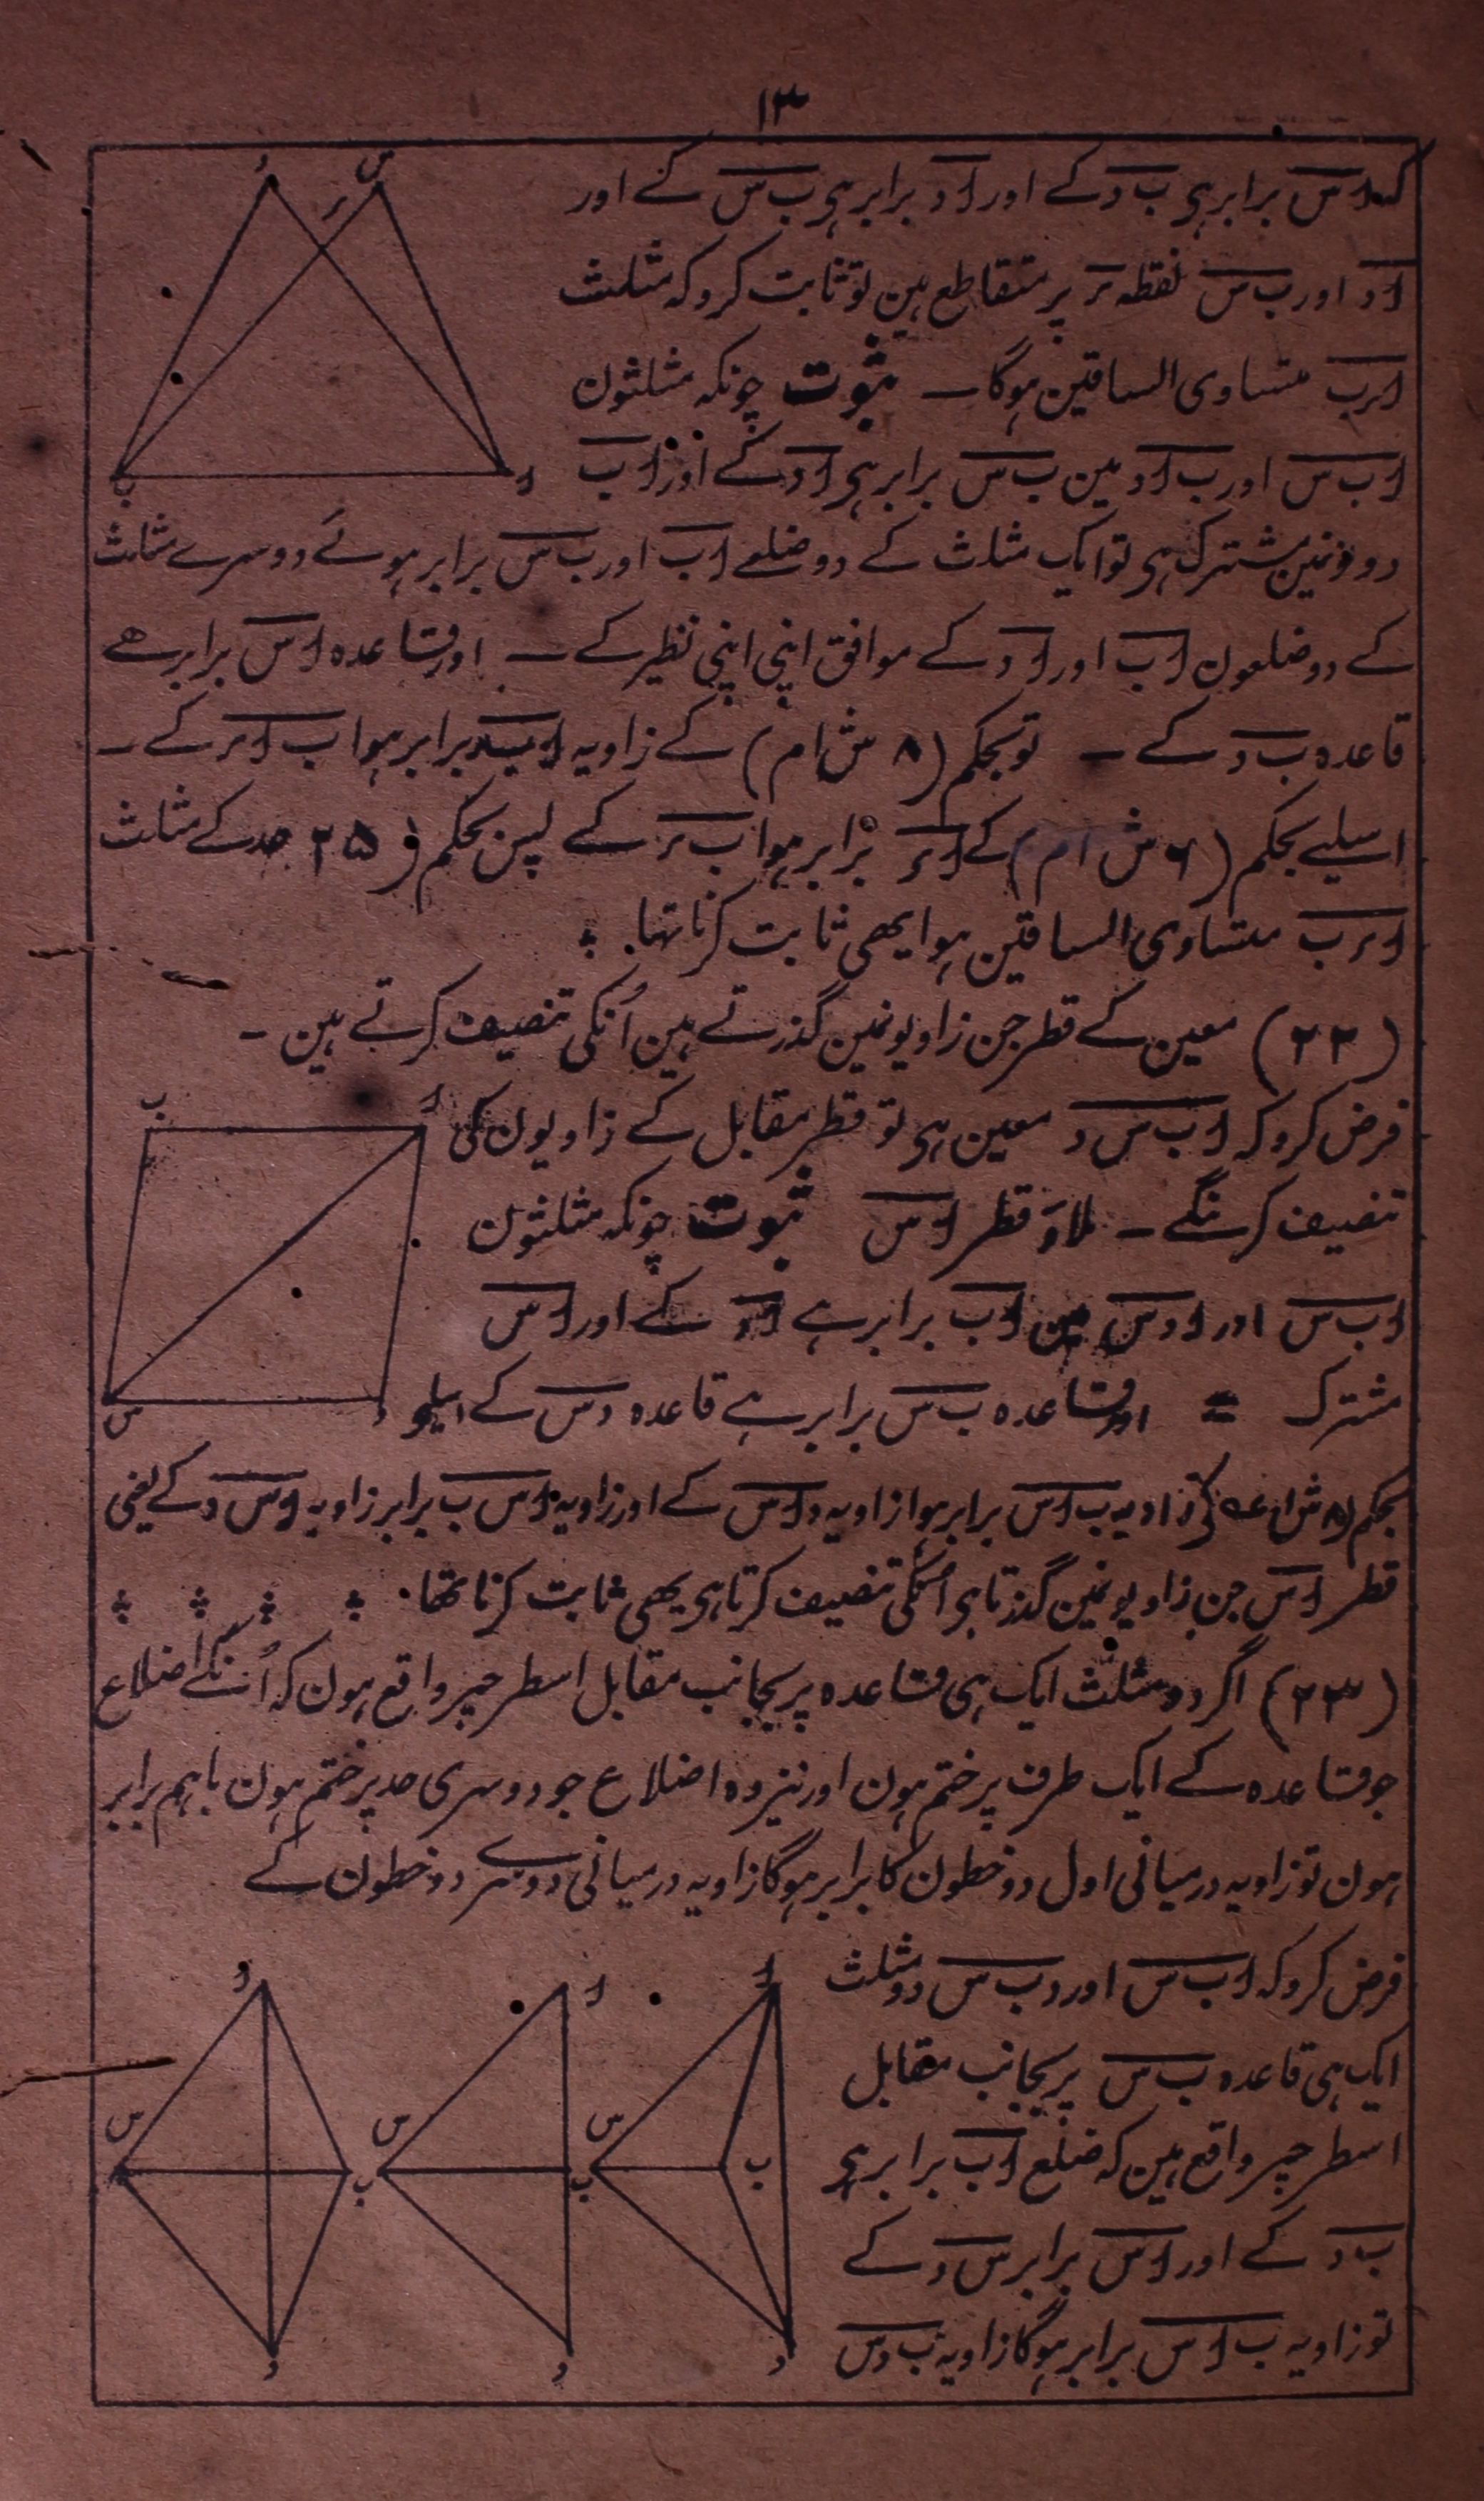 ۱۳
کہ اس برابر ہی ب د کے اور اد برابر ہی ب س کے اور
اد اور ب س نقطہ ر پر متقاطع ہین تو ثابت کرو کہ مثلث
ارب متساوی الساقین ہوگا ۔ ثبوت چونکہ مثلثون
اب س اور ب اد مین ب س برابر ہی اد کے اور اب
دونونمین مشترک ہی تو ایک مثلث کے دو ضلعے اب اور ب س برابر ہوئے دوسرے مثلث
کے دو ضلعون اب اور اد کے موافق اپنی اپنی نظیر کے ۔ اور قاعدہ اس برابر ہے
قاعدہ ب د کے ۔ تو بحکم (۸ ش ام) کے زاویہ ا ب ر برابر ہوا ب ا ر کے ۔
اسلیے بحکم (۶ ش ام) کے ا ر برابر ہوا ب ر کے پس بحکم (۲۵ حد کے مثلث
ارب متساوی الساقین ہوا یھی ثابت کرنا تھا
(۲۲) معین کے قطر جن زاویونمین گذرتے ہین اُنکی تنصیف کرتے ہین ۔
فرض کرو کہ اب س د معین ہی تو قطر مقابل کے زاویون کی
تنصیف کرینگے ۔ ملاؤ قطر اس ثبوت چونکہ مثلثون
اب س اور ادس مین اب برابر ہے اد کے اور اس
مشترک = اور قاعدہ ب س برابر ہے قاعدہ دس کے اسلیے
بحکم (۸ ش ا کے زاویہ ب اس برابر ہوا زاویہ داس کے اور زاویہ اس ب برابر زاویہ اس د کے یعنی
قطر اس جن زاویونمین گذرتا ہی اُنکی تنصیف کرتا ہی یھی ثابت کرنا تھا
(۲۳) اگر دو مثلث ایک ہی قاعدہ پر بجانب مقابل اسطرحپر واقع ہون کہ اُنکے اضلاع
جو قاعدہ کے ایک طرف پر ختم ہون اور نیز وہ اضلاع جو دوسری حد پر ختم ہون باہم برابر
ہون تو زاویہ درمیانی اول دو خطون کا برابر ہوگا زاویہ درمیانی دوسرے دو خطون کے
فرض کرو کہ اب س اور دب س دو مثلث
ایک ہی قاعدہ ب س پر بجانب مقابل
اسطرحپر واقع ہین کہ ضلع اب برابر ہی
ب د کے اور اس برابر س د کے
تو زاویہ ب اس برابر ہوگا زاویہ ب دس